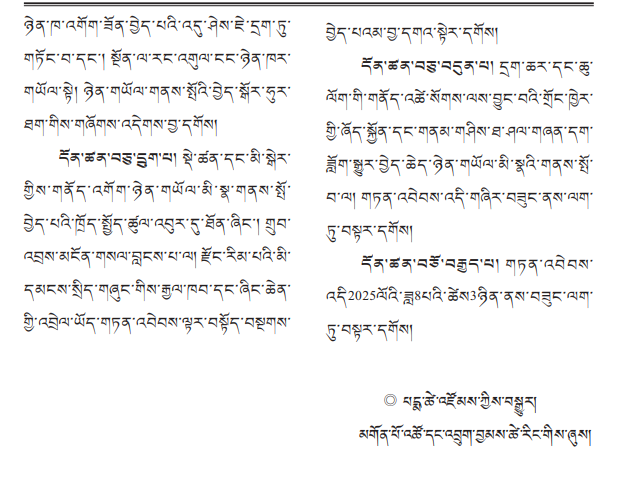 ཉེན་ཁ་འགོག་ཟོན་བྱེད་པའི་འདུ་ཤེས་ཇེ་དྲག་ཏུ་
གཏོང་བ་དང་། སྔོན་ལ་རང་འགུལ་ངང་ཉེན་ཁར་
གཡོལ་སྟེ། ཉེན་གཡོལ་གནས་སྤོའི་བྱེད་སྒོར་ཧུར་
ཐག་གིས་གཞོགས་འདེགས་བྱ་དགོས།
དོན་ཚན་བཅུ་དྲུག་པ། སྡེ་ཚན་དང་མི་སྒེར་
གྱིས་གནོད་འགོག་ཉེན་གཡོལ་མི་སྣ་གནས་སྤོ་
བྱེད་པའི་ཁྲོད་སྤྱོད་ཚུལ་འབུར་དུ་ཐོན་ཞིང་། གྲུབ་
འབྲས་མངོན་གསལ་བླངས་པ་ལ། རྫོང་རིམ་པའི་མི་
དམངས་སྲིད་གཞུང་གིས་རྒྱལ་ཁབ་དང་ཞིང་ཆེན་
གྱི་འབྲེལ་ཡོད་གཏན་འབེབས་ལྟར་བསྟོད་བསྔགས་
བྱེད་པའམ་བྱ་དགའ་སྟེར་དགོས།
དོན་ཚན་བཅུ་བདུན་པ། དྲག་ཆར་དང་ཆུ་
ལོག་གི་གནོད་འཚེ་སོགས་ལས་བྱུང་བའི་གྲོང་ཁྱེར་
གྱི་ཞོད་སྐྱོན་དང་གནམ་གཤིས་ཐ་ཤལ་གཞན་དག་
ཟློག་སྒྱུར་བྱེད་ཆེད་ཉེན་གཡོལ་མི་སྣའི་གནས་སྤོ་
བ་ལ། གཏན་འབེབས་འདི་གཞིར་བཟུང་ནས་ལག་
ཏུ་བསྟར་དགོས།
དོན་ཚན་བཅོ་བརྒྱད་པ། གཏན་འབེབས་
འདི2025ལོའི་ཟླ8པའི་ཚེས3ཉིན་ནས་བཟུང་ལག་
ཏུ་བསྟར་དགོས།
◎ པདྨ་ཚེ་འཛོམས་ཀྱིས་བསྒྱུར།
མགོན་པོ་འཚོ་དང་འབྲུག་བྱམས་ཚེ་རིང་གིས་ཞུས།